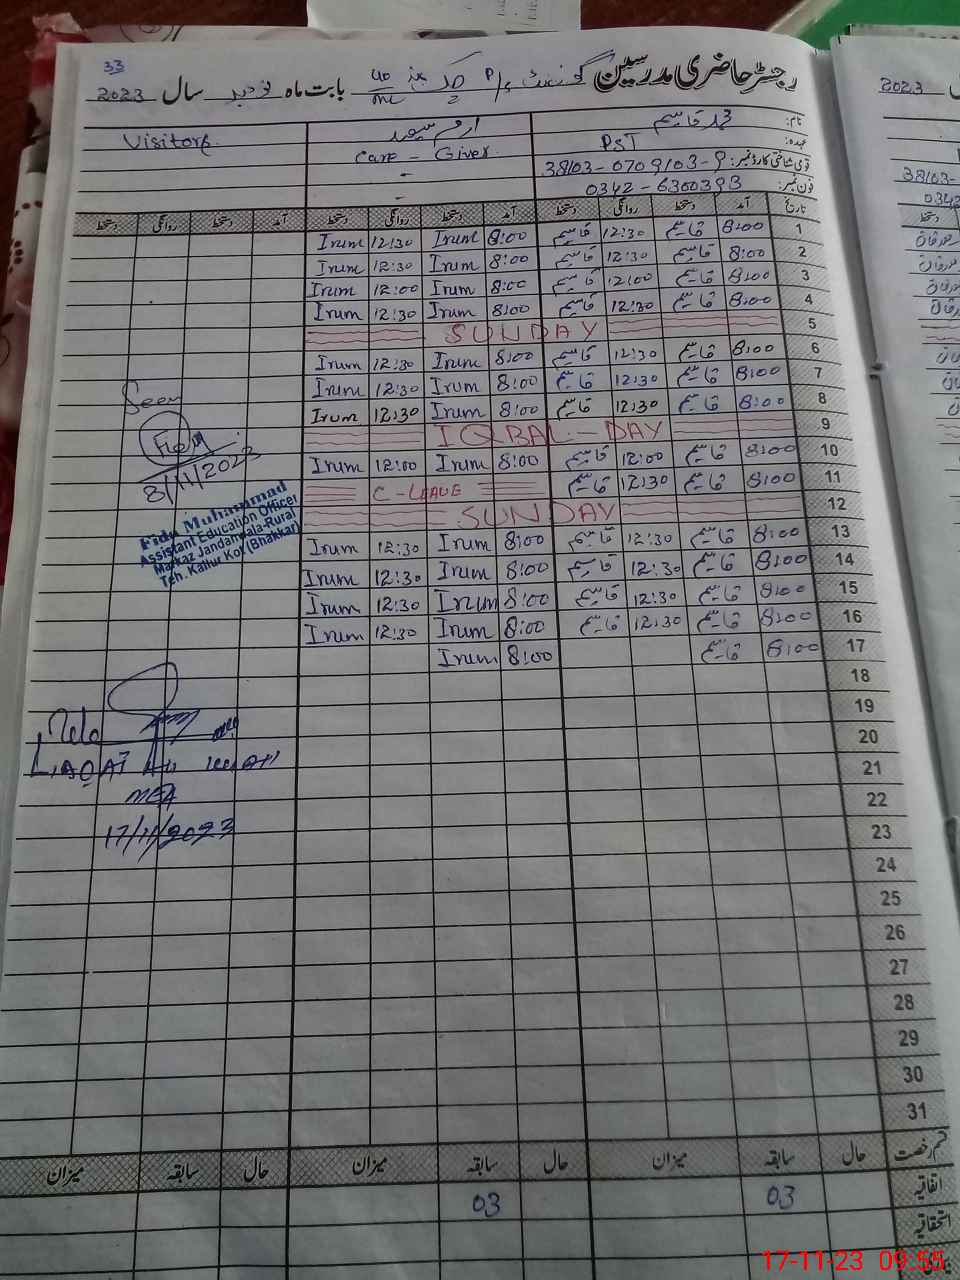 33
رجسٹر حاضری مدرسین گورنمنٹ P/S چک نمبر 40 / ML بابت ماہ نومبر سال 2023
نام: محمد قاسم ارم سعید Visitors
عہدہ: PST Care - Giver
قومی شناختی کارڈ نمبر: 38103-0709103-9 -
فون نمبر: 0342-6300393 -
تاریخ آمد دستخط روانگی دستخط آمد دستخط روانگی دستخط آمد دستخط روانگی دستخط
1 8:00 قاسم 12:30 قاسم 8:00 Irum 12:30 Irum
2 8:00 قاسم 12:30 قاسم 8:00 Irum 12:30 Irum
3 8:00 قاسم 12:00 قاسم 8:00 Irum 12:00 Irum
4 8:00 قاسم 12:30 قاسم 8:00 Irum 12:30 Irum
5 SUNDAY
6 8:00 قاسم 12:30 قاسم 8:00 Irum 12:30 Irum
7 8:00 قاسم 12:30 قاسم 8:00 Irum 12:30 Irum
8 8:00 قاسم 12:30 قاسم 8:00 Irum 12:30 Irum
9 IQBAL-DAY
10 8:00 قاسم 12:00 قاسم 8:00 Irum 12:00 Irum
11 8:00 قاسم 12:30 قاسم C-LEAVE
12 SUNDAY
13 8:00 قاسم 12:30 قاسم 8:00 Irum 12:30 Irum
14 8:00 قاسم 12:30 قاسم 8:00 Irum 12:30 Irum
15 8:00 قاسم 12:30 قاسم 8:00 Irum 12:30 Irum
16 8:00 قاسم 12:30 قاسم 8:00 Irum 12:30 Irum
17 8:00 قاسم 8:00 Irum
18
19
20
21
22
23
24
25
26
27
28
29
30
31
Seen
8/11/2023
Fida Muhammad
Assistant Education Officer
Markaz Jandanwala-Rural
Teh. Kallur Kot (Bhakkar)
LIAQAT Ali
MEA
17/11/2023
قسم رخصت حال سابقہ میزان حال سابقہ میزان حال سابقہ میزان
اتفاقیہ 03 03
استحقاقیہ
2023
38103-
0342
دستخط
17-11-23 09:55